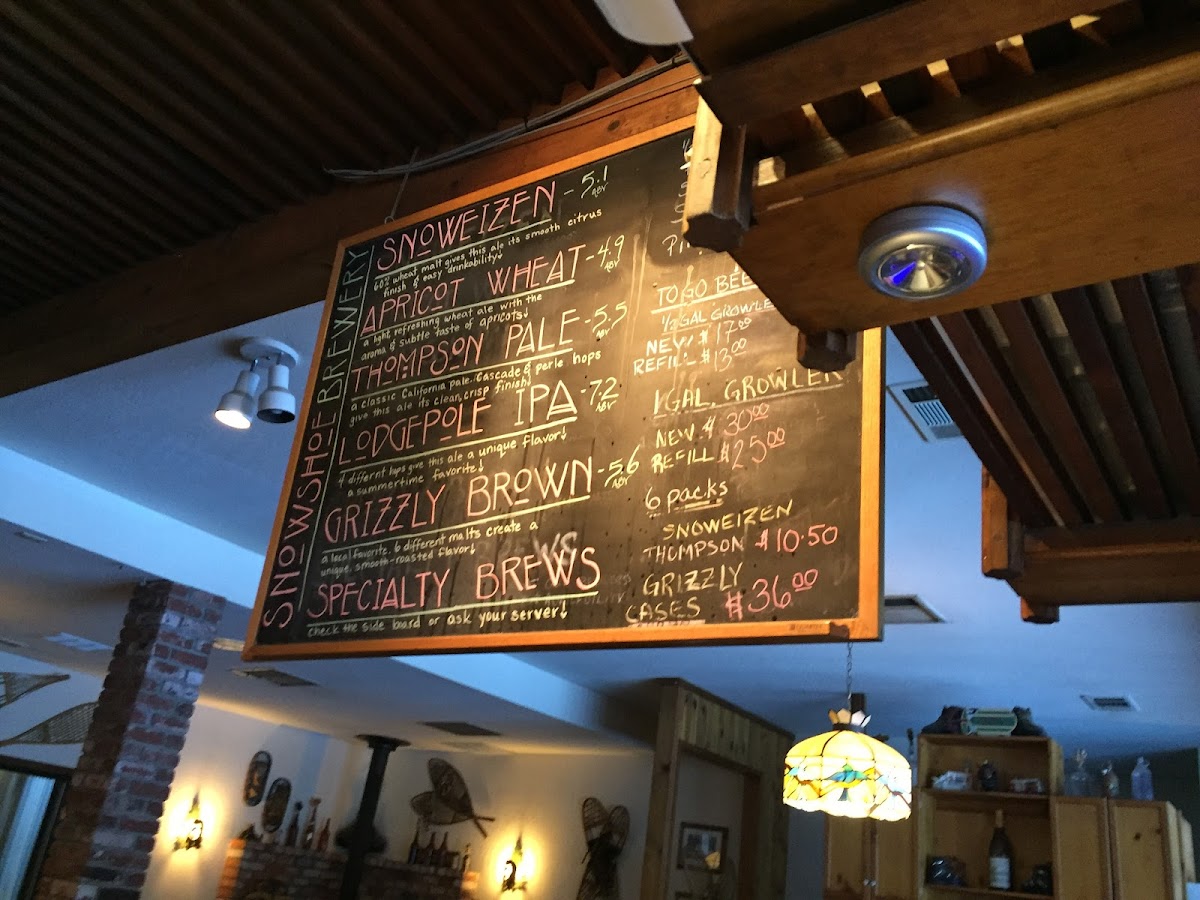 SNOWSHOE BREWERY
SNOWEIZEN - 5.1
ABV
60% wheat malt gives this ale its smooth citrus
finish & easy drinkability!
APRICOT WHEAT - 4.9
ABV
a light refreshing wheat ale with the
aroma & subtle taste of apricots!
THOMPSON PALE - 5.5
ABV
a classic California pale. Cascade & perle hops
give this ale its clean, crisp finish!
LODGEPOLE IPA - 7.2
ABV
4 differnt hops give this ale a unique flavor!
a summertime favorite!
GRIZZLY BROWN - 5.6
ABV
a local favorite. 6 different malts create a
unique, smooth-roasted flavor!
SPECIALTY BREWS
check the side board or ask your server!
TO GO BEE
1/2 GAL GROWLE
NEW $17.00
REFILL $13.00
1 GAL. GROWLER
NEW $30.00
REFILL $25.00
6 packs
SNOWEIZEN
THOMPSON $10.50
GRIZZLY
CASES $36.00